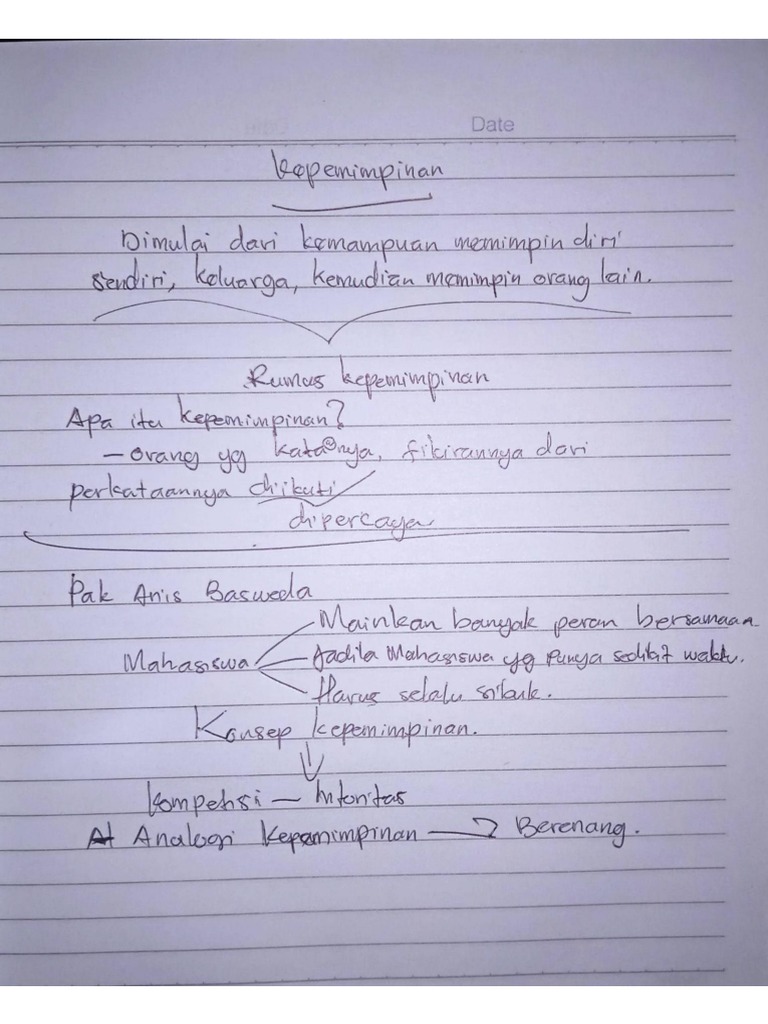 Date
Kepemimpinan
Dimulai dari kemampuan memimpin diri
sendiri, keluarga, kemudian memimpin orang lain.
Rumus kepemimpinan
Apa itu kepemimpinan?
- orang yg katanya, fikirannya dari
perkataannya diikuti
dipercaya
Pak Anis Basweda
Mainkan banyak peran bersamaan
Mahasiswa - Jadila Mahasiswa yg punya sedikit waktu.
Harus selalu sibuk.
Konsep kepemimpinan.
Kompetisi -
Analogi kepemimpinan → Berenang.